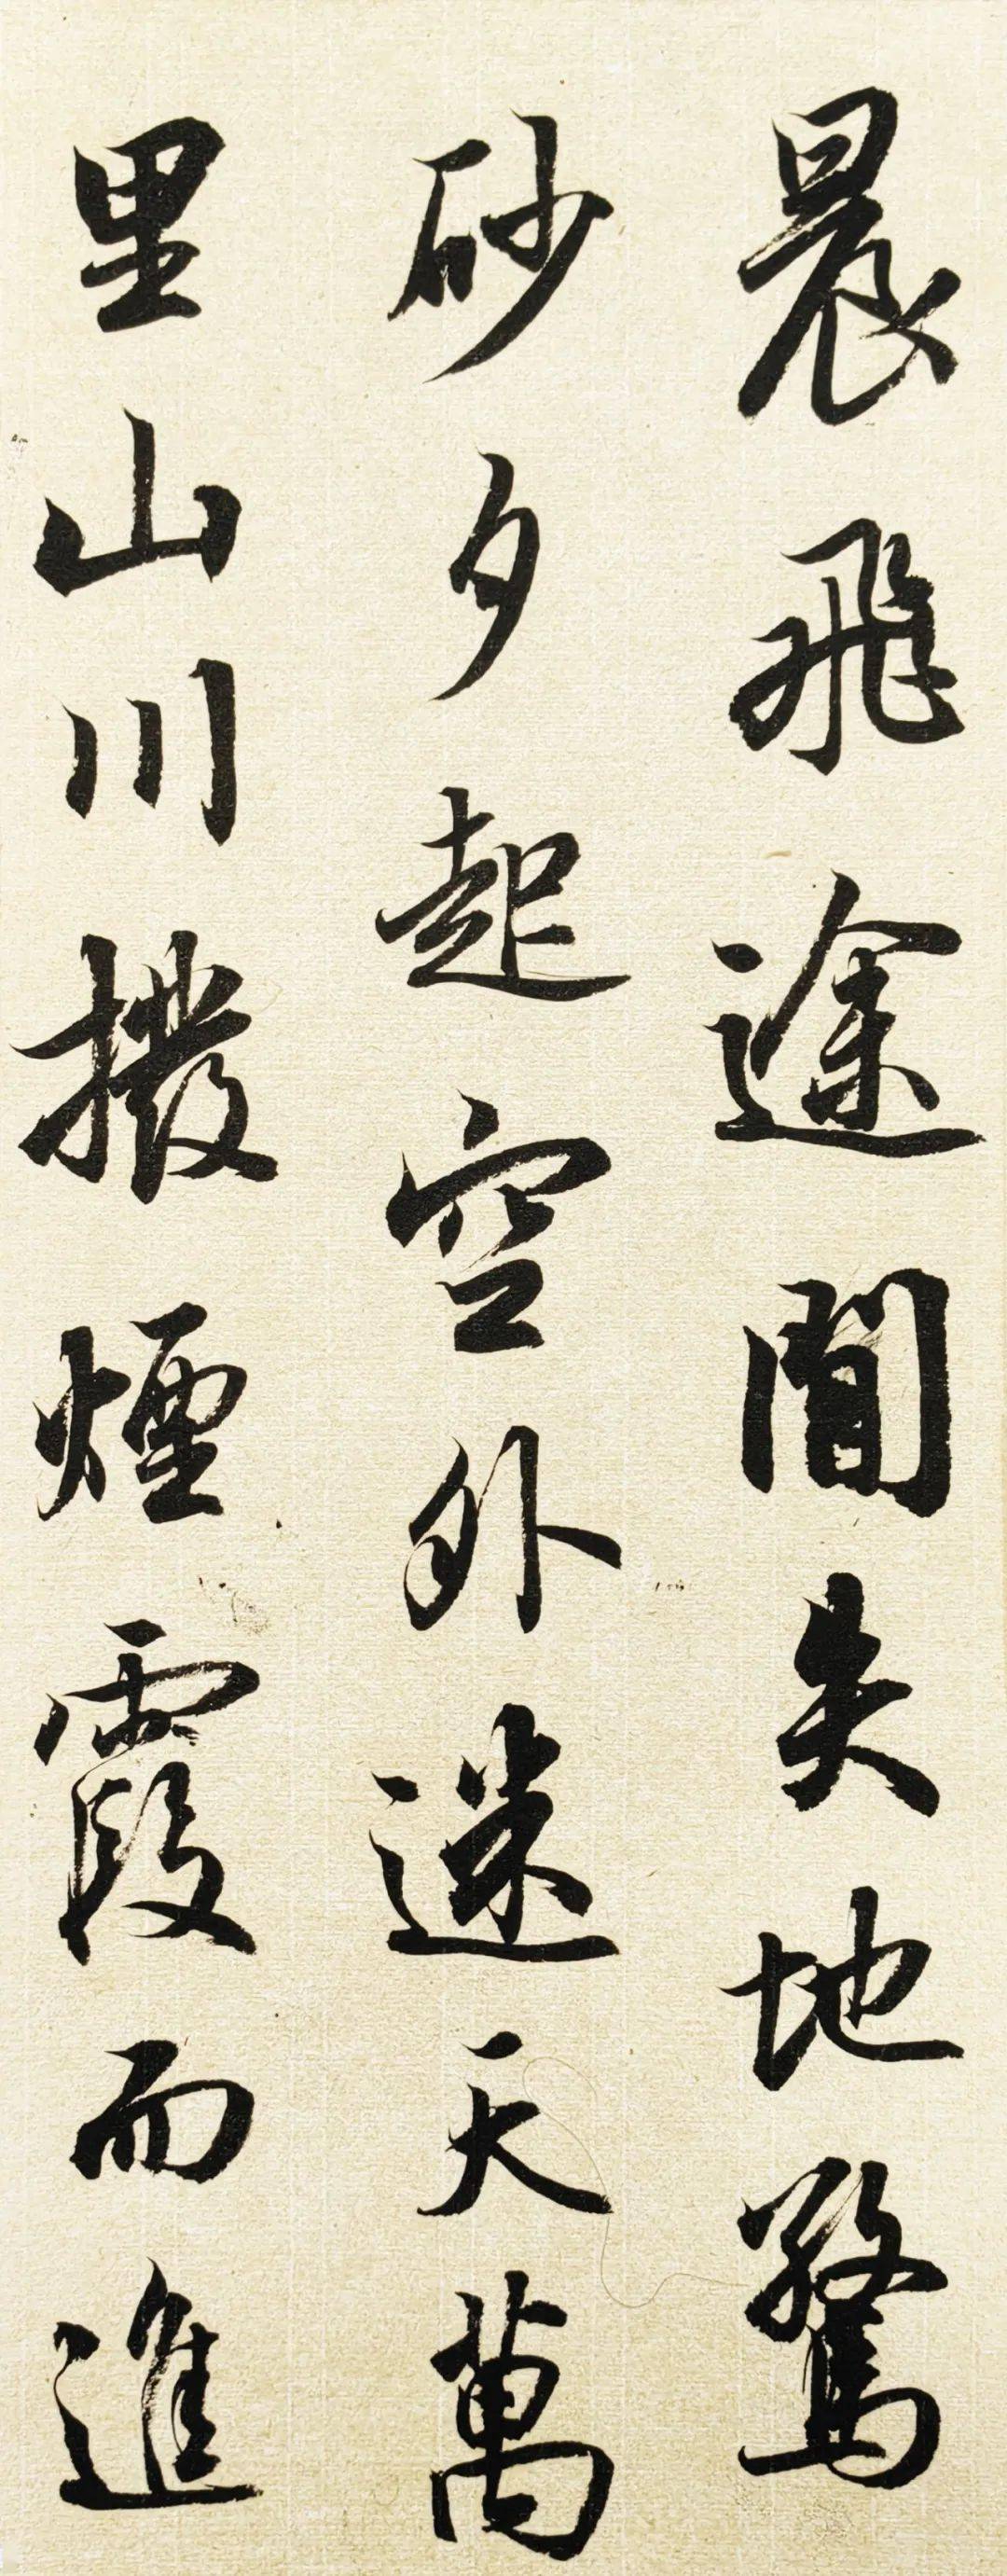 晨飛途間失地驚
砂夕起空外迷天萬
里山川撥煙霞而進